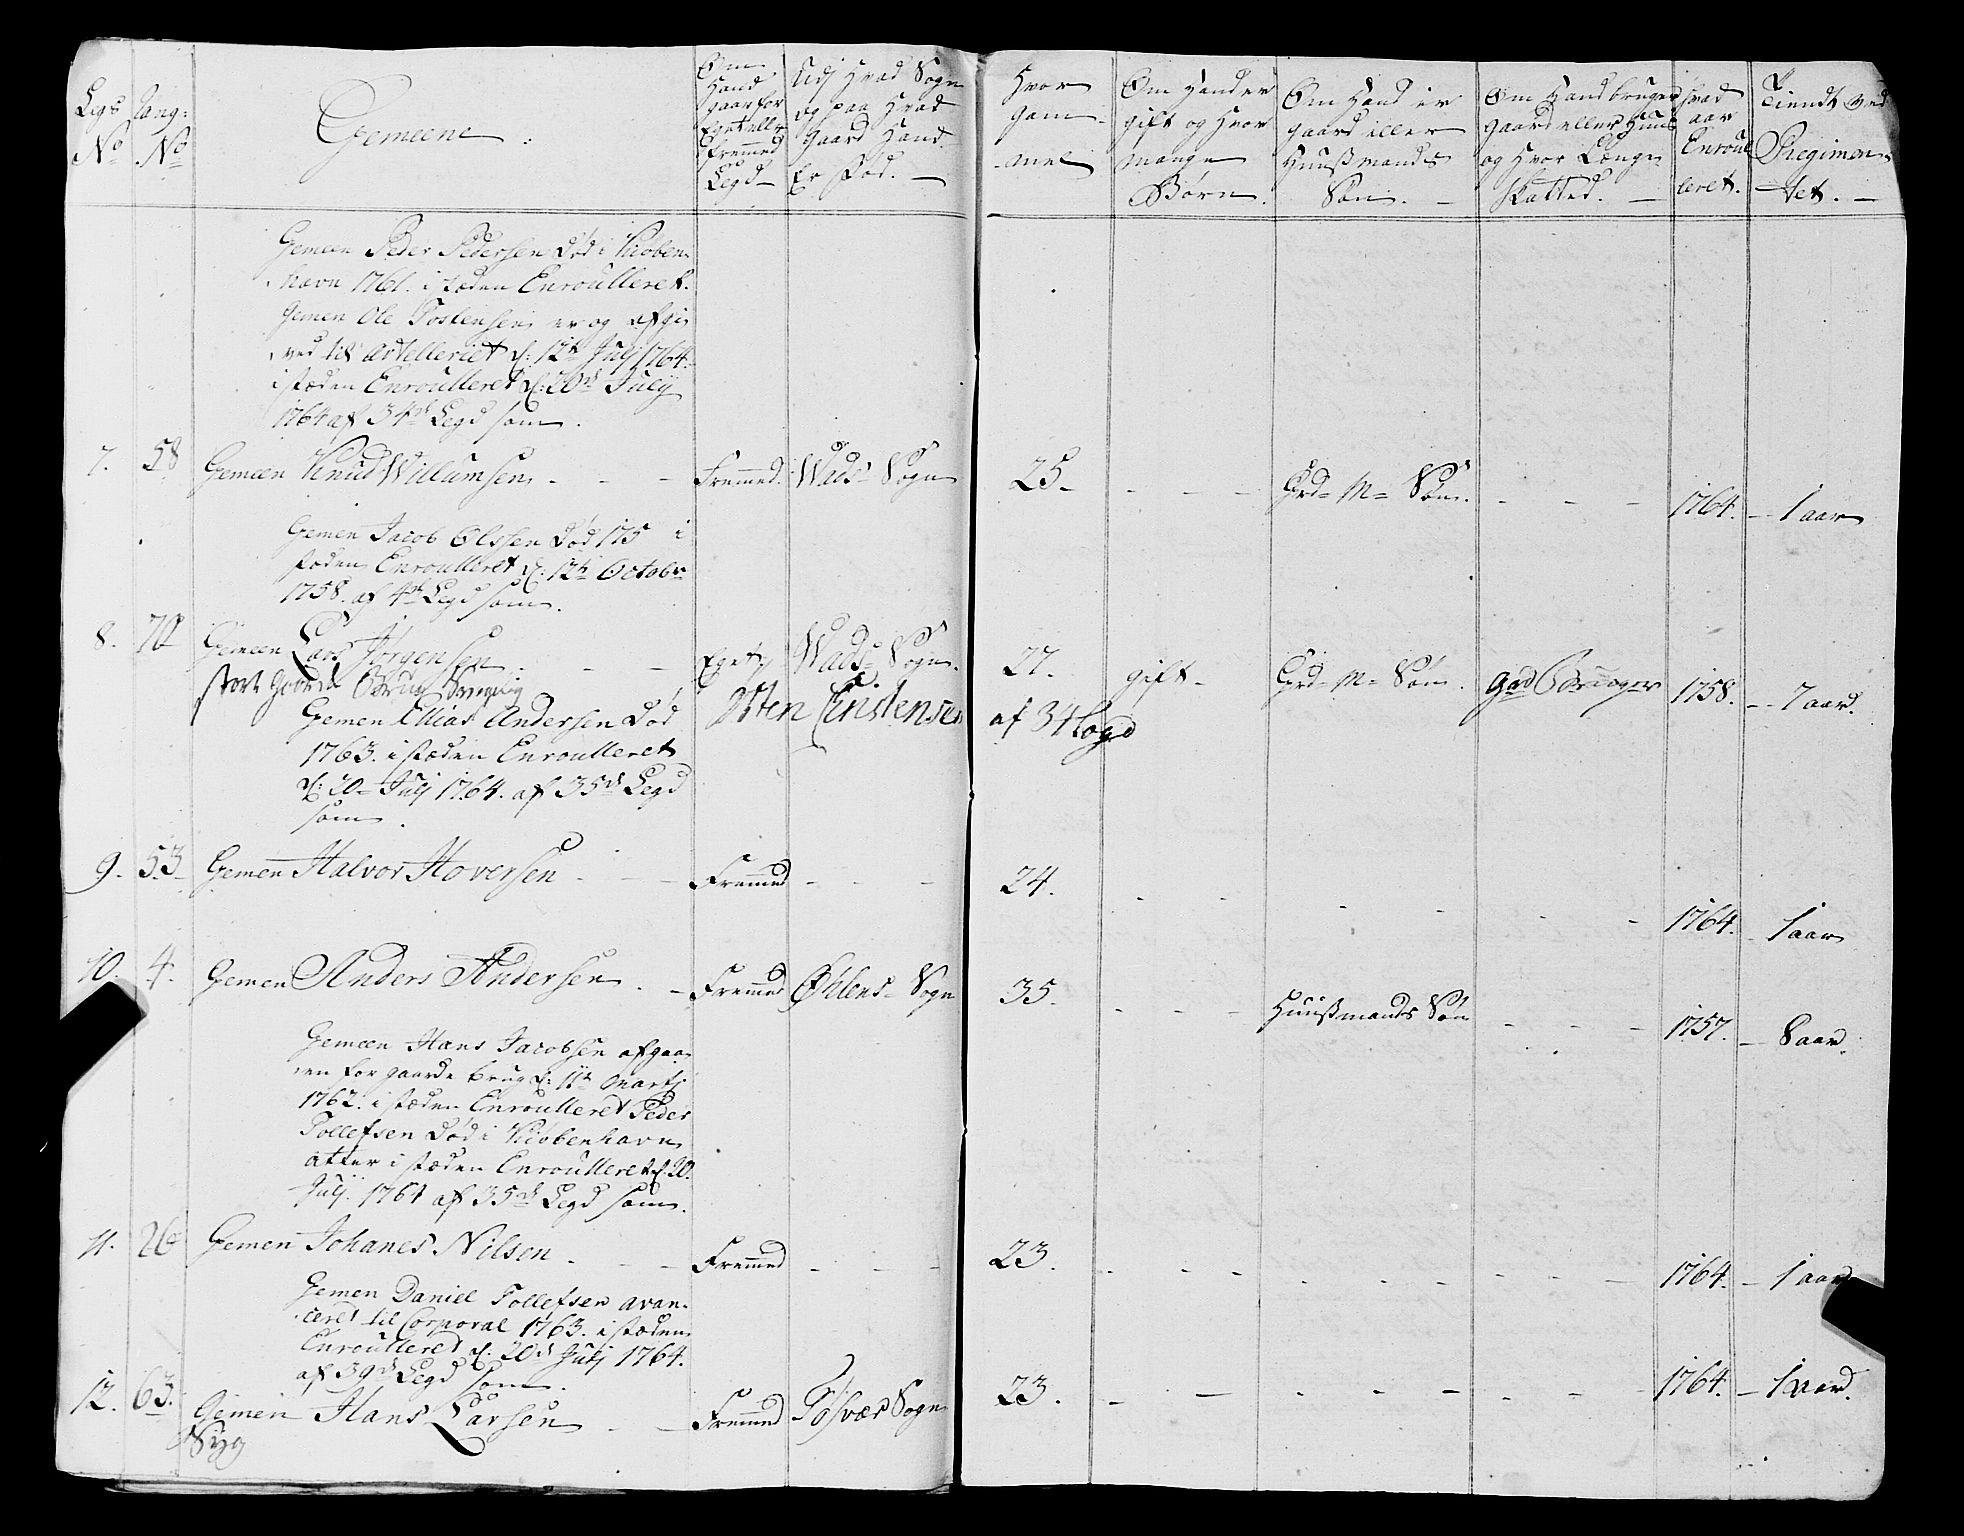 Legs No
Rang: No
Gemeene
Om Hand gaar for Eget eller fremmed Legd
Udj Hvad Sogn og paa Hvad Gaard Hand Er Fød.
Hvor Gammel
Om Hand er gift og Hvor mange Børn
Om Hand er gaard eller Huusmands Søn.
Om Hand bruger Gaard eller Huus og Hvor Længe Skatted.
Hvad aar Enroulleret.
Tiendt ved Regimentet.
Gemeen Peder Pedersen Død i Kiøben
havn 1761. i stæden Enroulleret
Gemen Ole Tostensen er og afgi
ved til Artelleriet d: 12te Julj 1764.
i stæden Enroulleret d: 20de Julij
1764 af 34de Legd som
7. 58 Gemeen Knud Willumsen - Fremmed. Wads Sogn 25 - Grd= M= Søn. - 1764. - 1 aar
Gemen Jacob Olssen Død 175 i
stæden Enroulleret d: 12te Octobr
1758. af 4de Legd som.
8. 70 Gemeen Lars Jørgensen - Eget Wads Sogn. 27. gift - Grd= M= Søn. Grd Bruuger 1758. - 7 aar.
Gaards Brug
Otten Cristensen af 34 Legd
Gemen Elias Andersen Død
1763. i stæden Enroulleret
d: 20 Julj 1764. af 35de Legd
som.
9. 53 Gemen Halvor Hoversen - Fremmed - 24. - 1764. - 1 aar
10. 4. Gemen Anders Andersen - Fremmed Øhlens Sogn 35. - Huusmands Søn - 1757. - 8 aar.
Gemeen Hans Jacobsen afgaa
en for gaarde brug d: 11te Martj
1762. i stæden Enroulleret Peder
Tollefsen Død i Kiøbenhavn
atter i stæden Enroulleret d. 20.
Julj. 1764 af 35de Legd som.
11. 26 Gemen Johanes Nilsen - Fremmed - 23. - 1764. - 1 aar
Gemen Daniel Tollefsen avan-
ceret til Corporal 1763. i stæden
Enroulleret d. 20de Julj 1764.
af 39de Legd som.
12. 63. Gemen Hans Larsen - Fremmed Tøsvær Sogn 23. - 1764. - 1 aar.
Syg